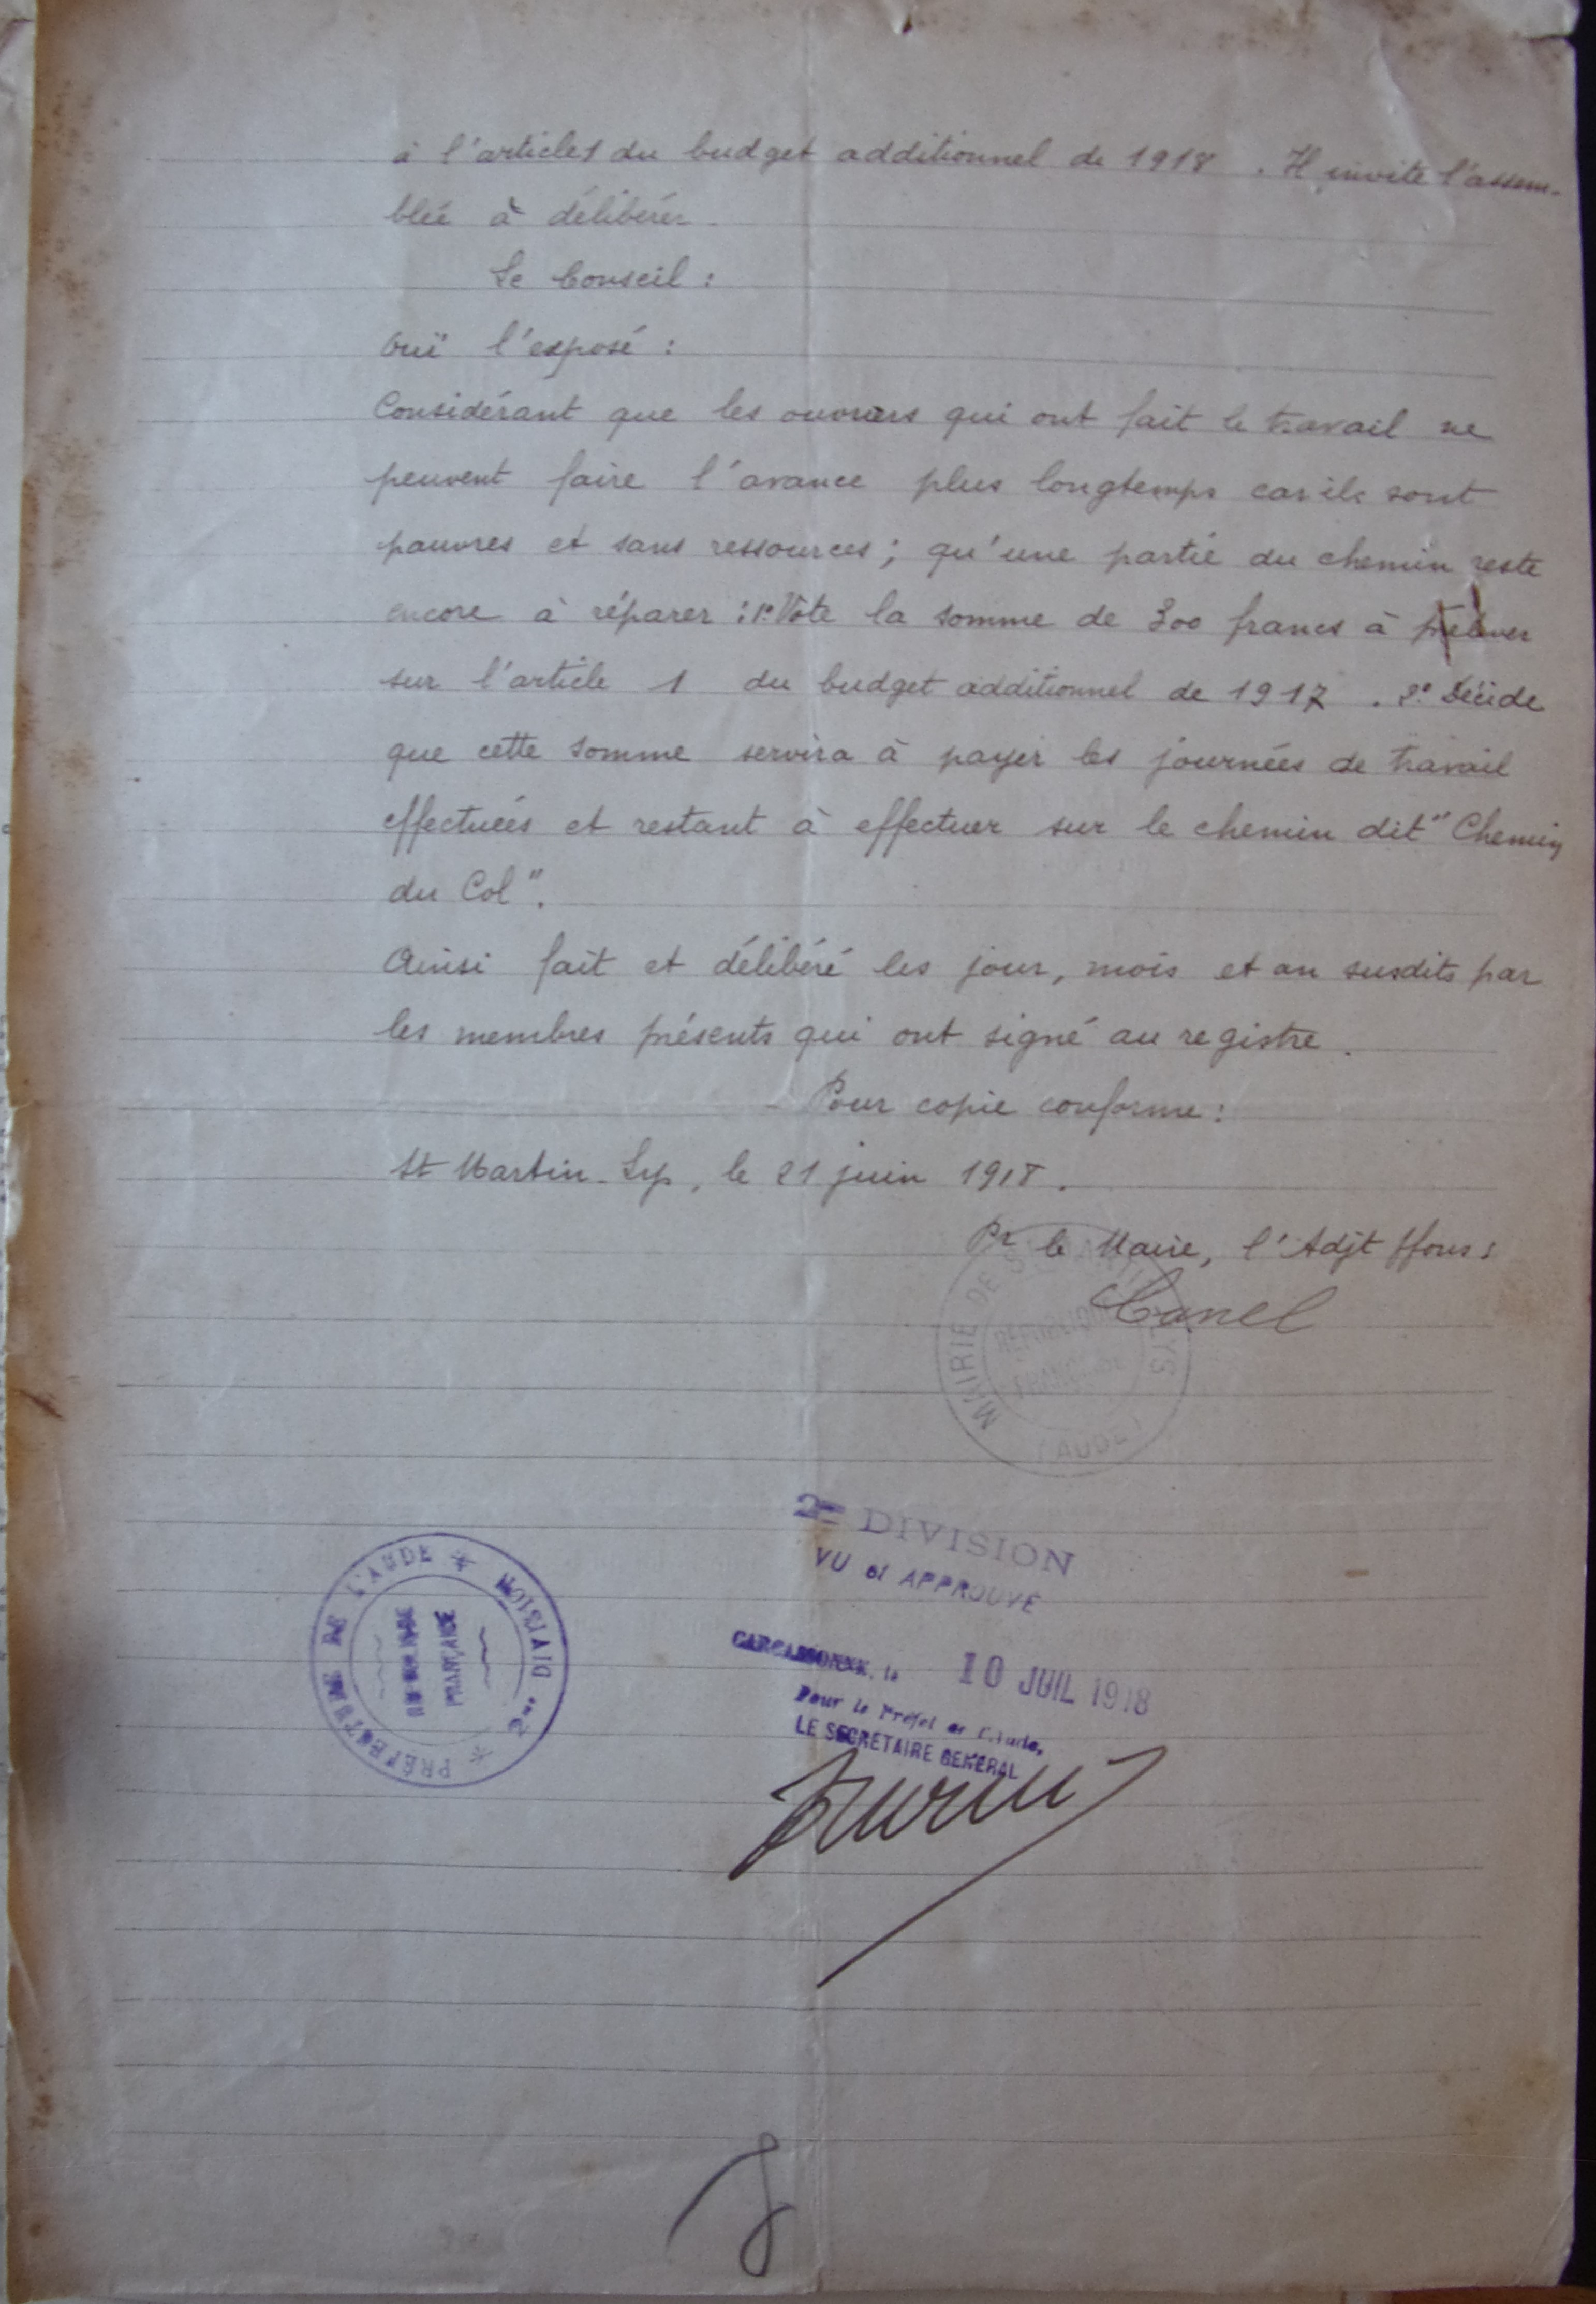 à l'article 1 du budget additionnel de 1918. Il invite l'assem-
blée à délibérer.
Le Conseil :
ouï l'exposé :
Considérant que les ouvriers qui ont fait le travail ne
peuvent faire l'avance plus longtemps car ils sont
pauvres et sans ressources ; qu'une partie du chemin reste
encore à réparer : 1° Vote la somme de 300 francs à prélever
sur l'article 1 du budget additionnel de 1917. 2° Décide
que cette somme servira à payer les journées de travail
effectuées et restant à effectuer sur le chemin dit "Chemin
du Col".
Ainsi fait et délibéré les jour, mois et an susdits par
les membres présents qui ont signé au registre.
Pour copie conforme :
St Martin-Lys, le 21 juin 1918.
Pr le Maire, l'Adjt ffons :
Canel
MAIRIE DE S LYS
RÉPUBLIQUE
FRANÇAISE
(AUDE)
2me DIVISION
VU et APPROUVÉ
CARCASSONNE, le 10 JUIL 1918
Pour le Préfet de l'Aude,
LE SECRETAIRE GENERAL
PRÉFECTURE DE L'AUDE * 2me DIVISION *
RÉPUBLIQUE
FRANÇAISE